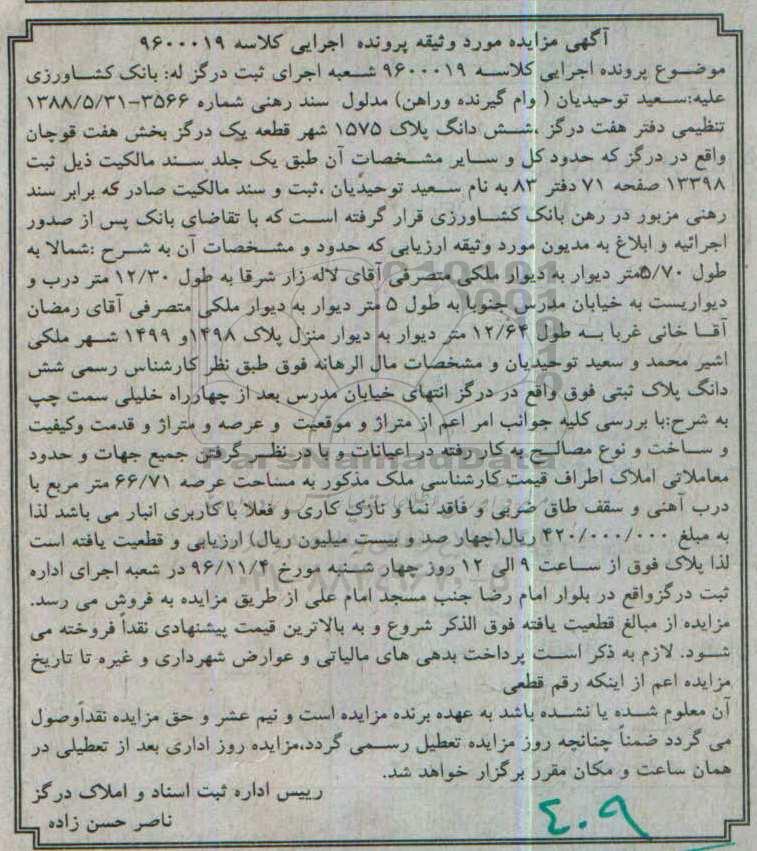 آگهی مزایده مورد وثیقه پرونده اجرایی کلاسه ۹۶۰۰۰۱۹
موضوع پرونده اجرایی کلاسه ۹۶۰۰۰۱۹ شعبه اجرای ثبت درگز له: بانک کشاورزی
علیه:سعید توحیدیان ( وام گیرنده وراهن) مدلول سند رهنی شماره ۳۵۶۶-۱۳۸۸/۵/۳۱
تنظیمی دفتر هفت درگز ،شش دانگ پلاک ۱۵۷۵ شهر قطعه یک درگز بخش هفت قوچان
واقع در درگز که حدود کل و سایر مشخصات آن طبق یک جلد سند مالکیت ذیل ثبت
۱۳۳۹۸ صفحه ۷۱ دفتر ۸۳ به نام سعید توحیدیان ،ثبت و سند مالکیت صادر که برابر سند
رهنی مزبور در رهن بانک کشاورزی قرار گرفته است که با تقاضای بانک پس از صدور
اجرائیه و ابلاغ به مدیون مورد وثیقه ارزیابی که حدود و مشخصات آن به شرح :شمالا به
طول ۵/۷۰متر دیوار به دیوار ملکی متصرفی آقای لاله زار شرقا به طول ۱۲/۳۰ متر درب و
دیواریست به خیابان مدرس جنوبا به طول ۵ متر دیوار به دیوار ملکی متصرفی آقای رمضان
آقا خانی غربا به طول ۱۲/۶۴ متر دیوار به دیوار منزل پلاک ۱۴۹۸و ۱۴۹۹ شهر ملکی
اشیر محمد و سعید توحیدیان و مشخصات مال الرهانه فوق طبق نظر کارشناس رسمی شش
دانگ پلاک ثبتی فوق واقع در درگز انتهای خیابان مدرس بعد از چهارراه خلیلی سمت چپ
به شرح:با بررسی کلیه جوانب امر اعم از متراژ و موقعیت و عرصه و متراژ و قدمت وکیفیت
و ساخت و نوع مصالح به کار رفته در اعیانات و با در نظر گرفتن جمیع جهات و حدود
معاملاتی املاک اطراف قیمت کارشناسی ملک مذکور به مساحت عرصه ۶۶/۷۱ متر مربع با
درب آهنی و سقف طاق ضربی و فاقد نما و نازک کاری و فعلا با کاربری انبار می باشد لذا
به مبلغ ۴۲۰/۰۰۰/۰۰۰ ریال(چهار صد و بیست میلیون ریال) ارزیابی و قطعیت یافته است
لذا پلاک فوق از ساعت ۹ الی ۱۲ روز چهار شنبه مورخ ۹۶/۱۱/۴ در شعبه اجرای اداره
ثبت درگزواقع در بلوار امام رضا جنب مسجد امام علی از طریق مزایده به فروش می رسد.
مزایده از مبالغ قطعیت یافته فوق الذکر شروع و به بالاترین قیمت پیشنهادی نقداً فروخته می
شود. لازم به ذکر است پرداخت بدهی های مالیاتی و عوارض شهرداری و غیره تا تاریخ
مزایده اعم از اینکه رقم قطعی
آن معلوم شده یا نشده باشد به عهده برنده مزایده است و نیم عشر و حق مزایده نقداًوصول
می گردد ضمناً چنانچه روز مزایده تعطیل رسمی گردد،مزایده روز اداری بعد از تعطیلی در
همان ساعت و مکان مقرر برگزار خواهد شد.
رییس اداره ثبت اسناد و املاک درگز
ناصر حسن زاده
۴۰۹
ParsNamadData